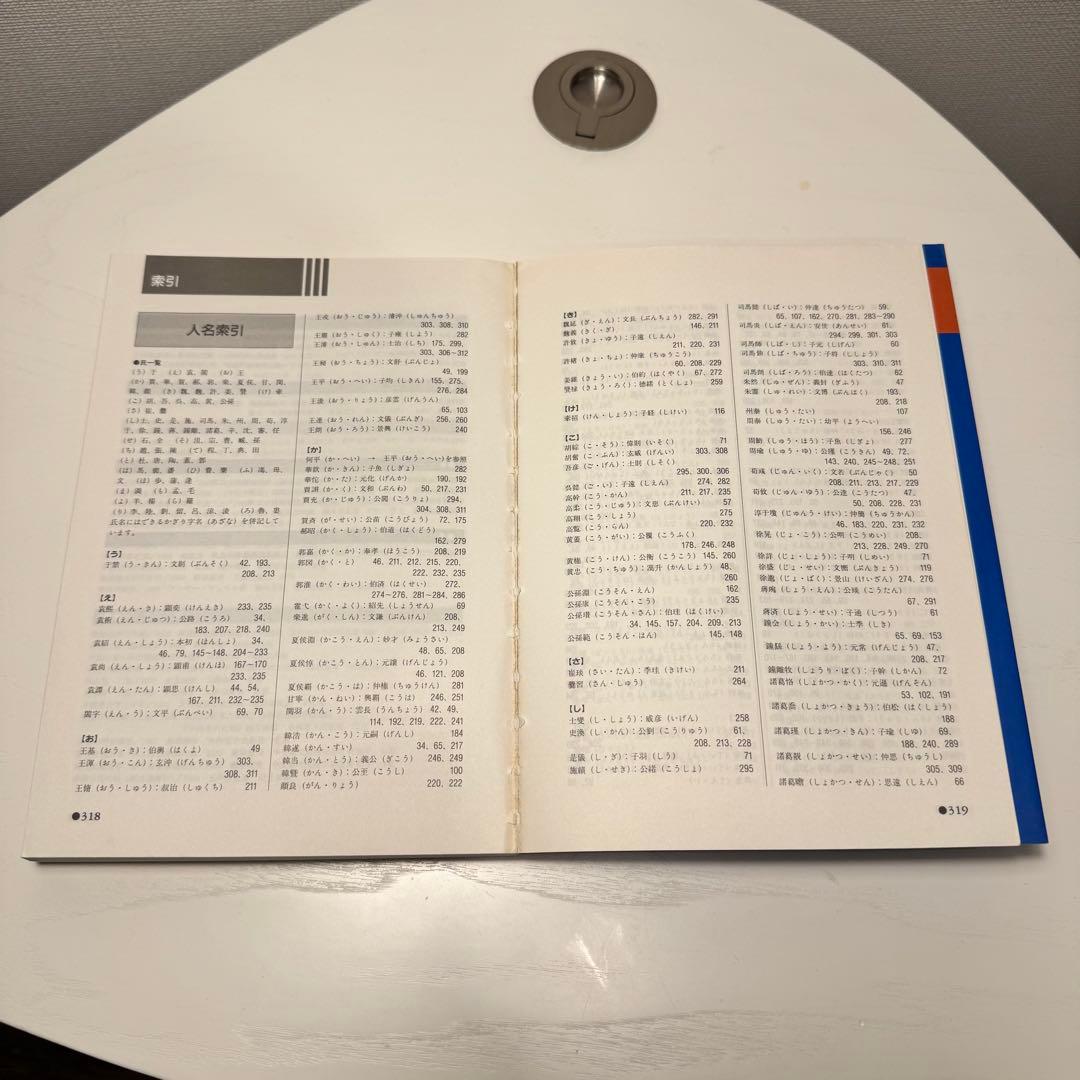 索引
人名索引
●氏一覧
(う) 于 (え) 袁、閻 (お) 王
(こ) 胡、吾、呉、高、黄、公孫
(さ) 崔、爨
(し) 士、史、是、施、司馬、朱、州、周、荀、淳
(ま) 満 (も) 孟、毛
(よ) 羊、楊 (ら) 羅
氏名にはできるかぎり字名(あざな)を併記して
います。
【う】
于禁(う・きん):文則(ぶんそく) 42、193、
208、213
【え】
袁熙(えん・き):顕奕(けんえき) 233、235
袁術(えん・じゅつ):公路(こうろ) 34、
183、207、218、240
袁紹(えん・しょう):本初(ほんしょ) 34、
46、79、145〜148、204〜233
袁尚(えん・しょう):顕甫(けんほ) 167〜170
233、235
袁譚(えん・たん):顕思(けんし) 44、54、
167、211、232〜235
閻宇(えん・う):文平(ぶんぺい) 69、70
【お】
王基(おう・き):伯輿(はくよ) 49
王渾(おう・こん):玄沖(げんちゅう) 303、
308、311
王脩(おう・しゅう):叔治(しゅくち) 211
王戎(おう・じゅう):濬沖(しゅんちゅう)
303、308、310
王粛(おう・しゅく):子雍(しよう) 282
王濬(おう・しゅん):士治(しち) 175、299、
303、306〜312
王昶(おう・ちょう):文舒(ぶんじょ)
49、199
王平(おう・へい):子均(しきん) 155、275、
276、284
王淩(おう・りょう):彦雲(げんうん)
65、103
王連(おう・れん):文儀(ぶんぎ) 256、260
王朗(おう・ろう):景興(けいこう) 240
【か】
何平(か・へい) → 王平(おう・へい)を参照
華歆(か・きん):子魚(しぎょ) 282
華佗(か・だ):元化(げんか) 190、192
賈詡(か・く):文和(ぶんわ) 50、217、231
賈充(か・じゅう):公閭(こうりょ) 294、
304、308、311
賀斉(が・せい):公苗(こうびょう) 72、175
郝昭(かく・しょう):伯道(はくどう)
162、279
郭嘉(かく・か):奉孝(ほうこう) 208、219
郭図(かく・と) 46、211、212、215、220、
222、232、235
郭淮(かく・わい):伯済(はくせい) 272、
274〜276、281〜284、286
霍弋(かく・よく):紹先(しょうせん) 69
楽進(がく・しん):文謙(ぶんけん) 208、
213、249
夏侯淵(かこう・えん):妙才(みょうさい)
48、65、208
夏侯惇(かこう・とん):元譲(げんじょう)
46、121、208
夏侯覇(かこう・は):仲権(ちゅうけん) 281
甘寧(かん・ねい):興覇(こうは) 246、251
関羽(かん・う):雲長(うんちょう) 42、49、
114、192、219、222、241
韓浩(かん・こう):元嗣(げんし) 184
韓遂(かん・すい) 34、65、217
韓当(かん・とう):義公(ぎこう) 246、249
韓曁(かん・き):公至(こうし) 100
顔良(がん・りょう) 220、222
●318
【き】
魏延(ぎ・えん):文長(ぶんちょう) 282、291
麴義(きく・ぎ) 146、211
許攸(きょ・ゆう):子遠(しえん)
211、220、231
許褚(きょ・ちょ):仲康(ちゅうこう)
60、208、229
姜維(きょう・い):伯約(はくやく) 67、272
龔禄(きょう・ろく):徳緒(とくしょ) 259
【け】
牽招(けん・しょう):子経(しけい) 116
【こ】
胡綜(こ・そう):偉則(いそく) 71
胡奮(こ・ふん):玄威(げんい) 303、308
吾彦(ご・げん):士則(しそく)
295、300、306
呉懿(ご・い):子遠(しえん) 274、282
高幹(こう・かん) 211、217、235
高柔(こう・じゅう):文恵(ぶんけい) 57
高翔(こう・しょう) 275
高覧(こう・らん) 220、232
黄蓋(こう・がい):公覆(こうふく)
178、246、248
黄権(こう・けん):公衡(こうこう) 145、260
黄忠(こう・ちゅう):漢升(かんしょう) 48、
260
公孫淵(こうそん・えん) 162
公孫康(こうそん・こう) 235
公孫瓚(こうそん・さん):伯珪(はくけい)
34、145、157、204、209、213
公孫範(こうそん・はん) 145、148
【さ】
崔琰(さい・たん):季珪(きけい) 211
爨習(さん・しゅう) 264
【し】
士燮(し・しょう):威彦(いげん) 258
史渙(し・かん):公劉(こうりゅう) 61、
208、213、228
是儀(し・ぎ):子羽(しう) 71
施績(し・せき):公緒(こうしょ) 295
司馬懿(しば・い):仲達(ちゅうたつ) 59、
65、107、162、270、281、283〜290
司馬炎(しば・えん):安世(あんせい) 61、
294、299、301、303
司馬師(しば・し):子元(しげん) 60
司馬伷(しば・ちゅう):子将(ししょう)
303、310、311
司馬朗(しば・ろう):伯達(はくたつ) 62
朱然(しゅ・ぜん):義封(ぎふう) 47
朱霊(しゅ・れい):文博(ぶんはく) 193、
208、218
州泰(しゅう・たい) 107
周泰(しゅう・たい):幼平(ようへい)
156、246
周魴(しゅう・ほう):子魚(しぎょ) 277
周瑜(しゅう・ゆ):公瑾(こうきん) 49、72、
143、240、245〜248、251
荀彧(じゅん・いく):文若(ぶんじゃく) 50
208、211、213、217、229
荀攸(じゅん・ゆう):公達(こうたつ) 47、
50、208、228、231
淳于瓊(じゅんう・けい):仲簡(ちゅうかん)
46、183、220、231、232
徐晃(じょ・こう):公明(こうめい) 208、
213、228、249、270
徐詳(じょ・しょう):子明(しめい) 71
徐盛(じょ・せい):文嚮(ぶんきょう) 119
徐邈(じょ・ばく):景山(けいざん) 274、276
蔣琬(しょう・えん):公琰(こうたん)
67、291
蔣済(しょう・せい):子通(しつう) 61
鍾会(しょう・かい):士季(しき)
65、69、153
鍾繇(しょう・よう):元常(げんじょう) 47、
208、217
鍾離牧(しょうり・ぼく):子幹(しかん) 72
諸葛恪(しょかつ・かく):元遜(げんそん)
53、102、191
諸葛喬(しょかつ・きょう):伯松(はくしょう)
188
諸葛瑾(しょかつ・きん):子瑜(しゆ) 69、
188、240、289
諸葛靚(しょかつ・せい):仲思(ちゅうし)
305、309
諸葛瞻(しょかつ・せん):思遠(しえん) 66
●319